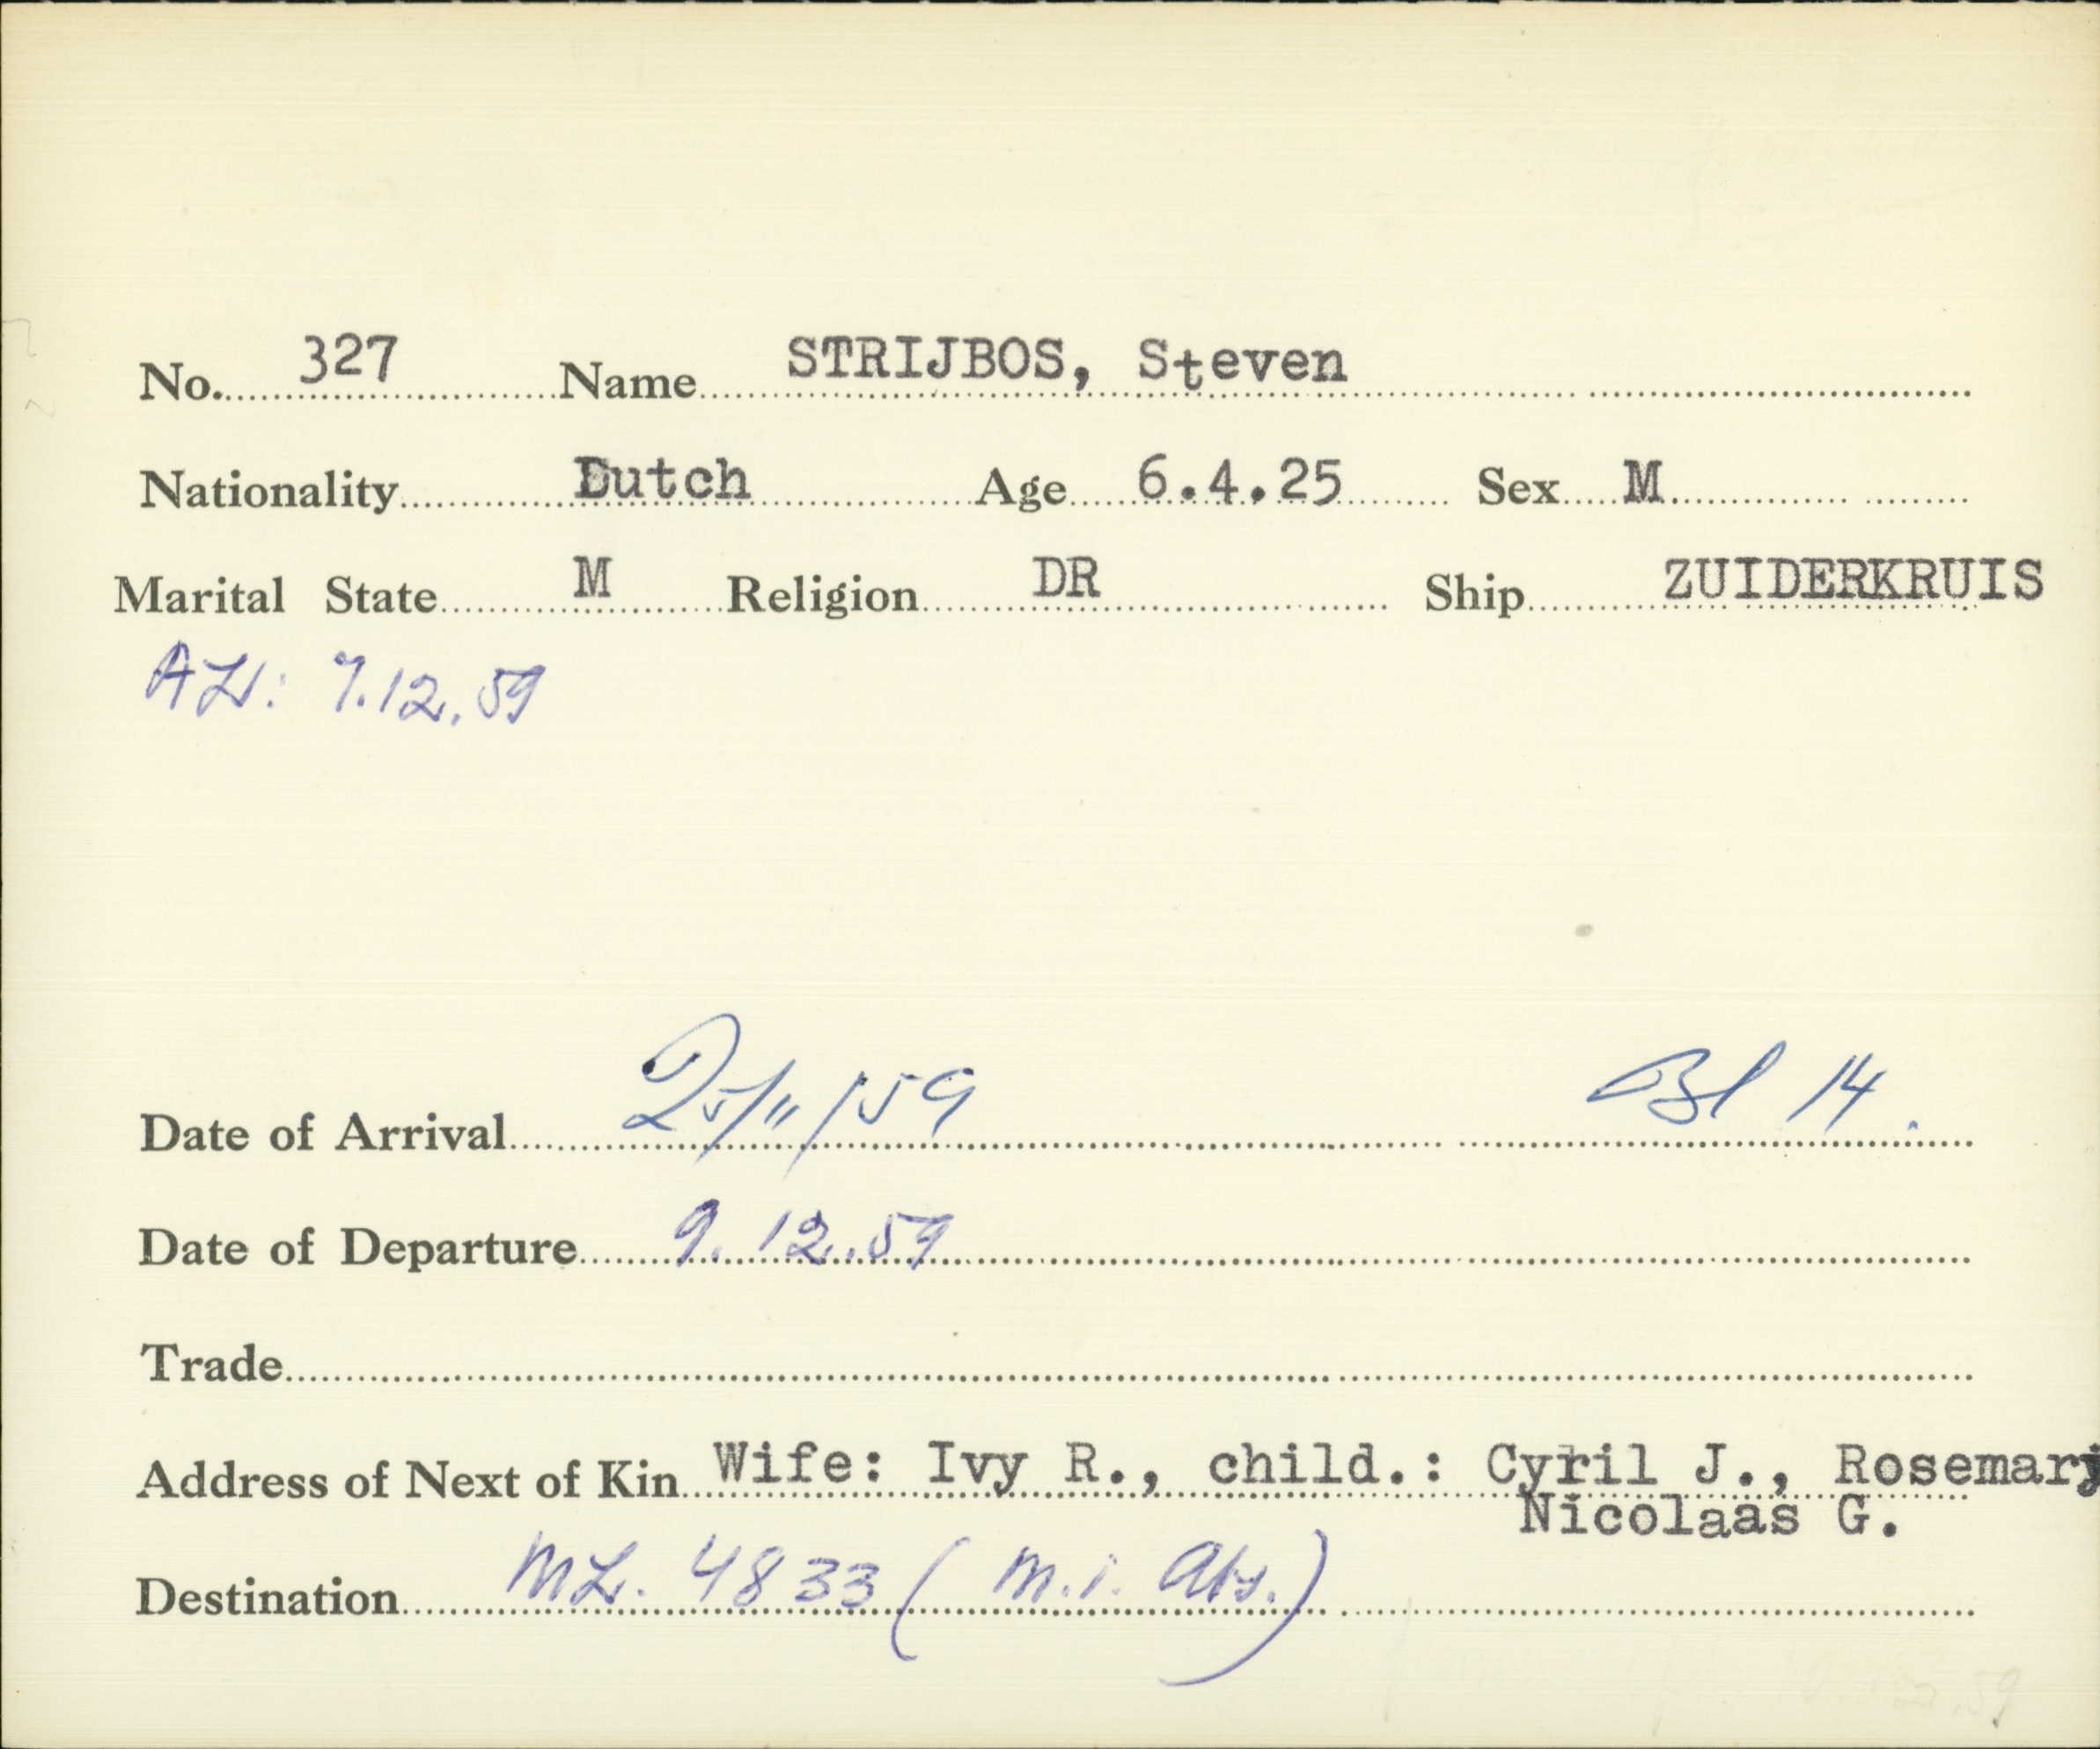 No. 327 Name STRIJBOS, Steven
Nationality Dutch Age 6.4.25 Sex M
Marital State M Religion DR Ship ZUIDERKRUIS
7.12.59
Date of Arrival 25/11/59 Bl 14.
Date of Departure 9.12.59
Trade
Address of Next of Kin Wife: Ivy R., child.: Cyril J., Rosemarj
Nicolaas G.
Destination 4833 (M.i. Abs.)